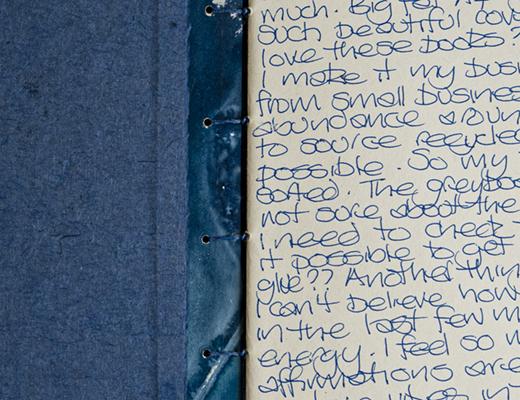 much. Big
such beautiful
love these books?
I make it my busi
from small busines
abundance
to source recycle
possible. So my
The greyboa
not sure about the
I need to check
it possible to get
glue?? Another thin
I can't believe how
in the last few m
energy. I feel so
affirmations are